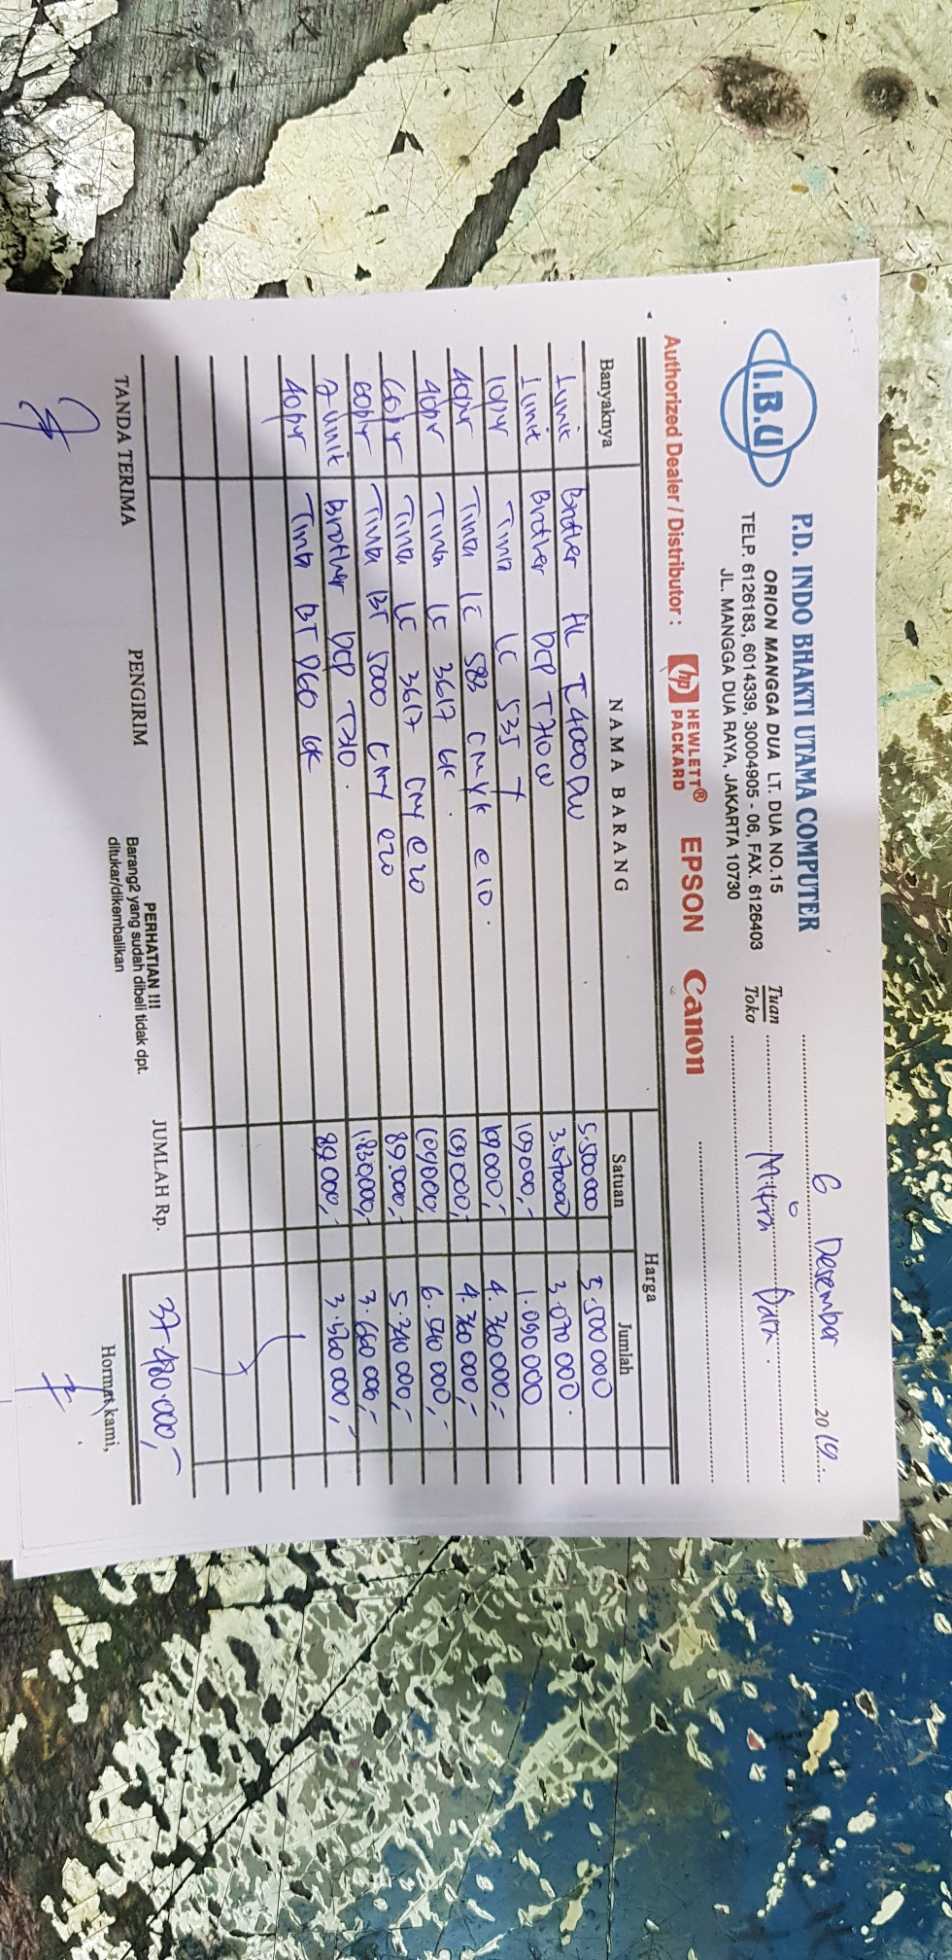 I.B.U
P.D. INDO BHAKTI UTAMA COMPUTER
ORION MANGGA DUA LT. DUA NO.15
TELP. 6126183, 6014339, 30004905 - 06, FAX. 6126403
JL. MANGGA DUA RAYA, JAKARTA 10730
6 Desember 2019
Tuan
Toko
Mitra
Authorized Dealer / Distributor : hp HEWLETT® PACKARD EPSON Canon
Banyaknya NAMA BARANG Harga
Satuan Jumlah
1 unit Brother HL T4000DW 5.500.000 5.500.000
1 unit Brother DCP T710W 3.070.000 3.070.000.
10 pcs Tinta LC 535 Y 109.000,- 1.090.000
40 pcs Tinta LC 583 CMYK @ 10. 109.000,- 4.360.000,-
40 pcs Tinta LC 3617 BK. 109.000,- 4.360.000,-
60 pcs Tinta LC 3617 CMY @ 20 109.000,- 6.540.000,-
60 pcs Tinta BT 5000 CMY @ 20 89.000,- 5.340.000,-
2 unit Brother DCP T310. 1.830.000,- 3.660.000,-
40 pcs Tinta BT D60 BK 89.000,- 3.560.000,-
TANDA TERIMA PENGIRIM
PERHATIAN !!!
Barang2 yang sudah dibeli tidak dpt.
ditukar/dikembalikan
JUMLAH Rp. 37.480.000,-
Hormat kami,